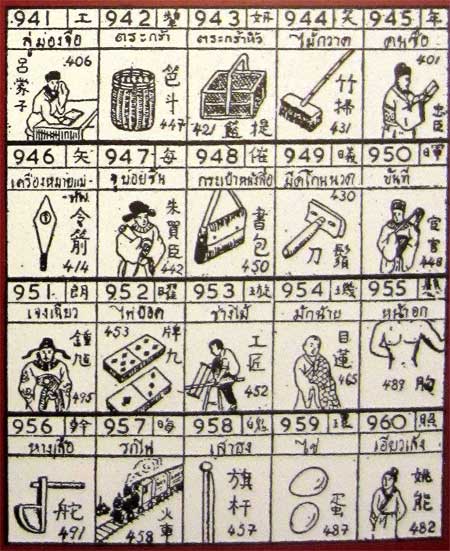 941 工 942 943 妍 944 笑 945 年
ลู่มองจือ ตระกร้า ตระกร้าหิ้ว ไม้กวาด คนซื่อ
呂蒙子 406 笆斗 447 421 籃提 竹掃 431 401 忠臣
946 矢 947 每 948 催 949 曦 950 暉
เครื่องหมายแม่ทัพ จูบ้อยซิ้น กระเป๋าหนังสือ มีดโกนหนวด ขันที
令箭 414 朱買臣 442 書包 450 430 刀鬍 宦官 448
951 朗 952 曜 953 璇 954 璣 955
ช่างไม้ หน้าอก
鍾馗 495 453 牌九 工匠 452 目蓮 465 489 胸
956 957 晦 958 959 環 960 照
หางเสือ รถไฟ เสาธง ไข่
舵 491 458 火車 旗杆 457 蛋 487 姚能 482